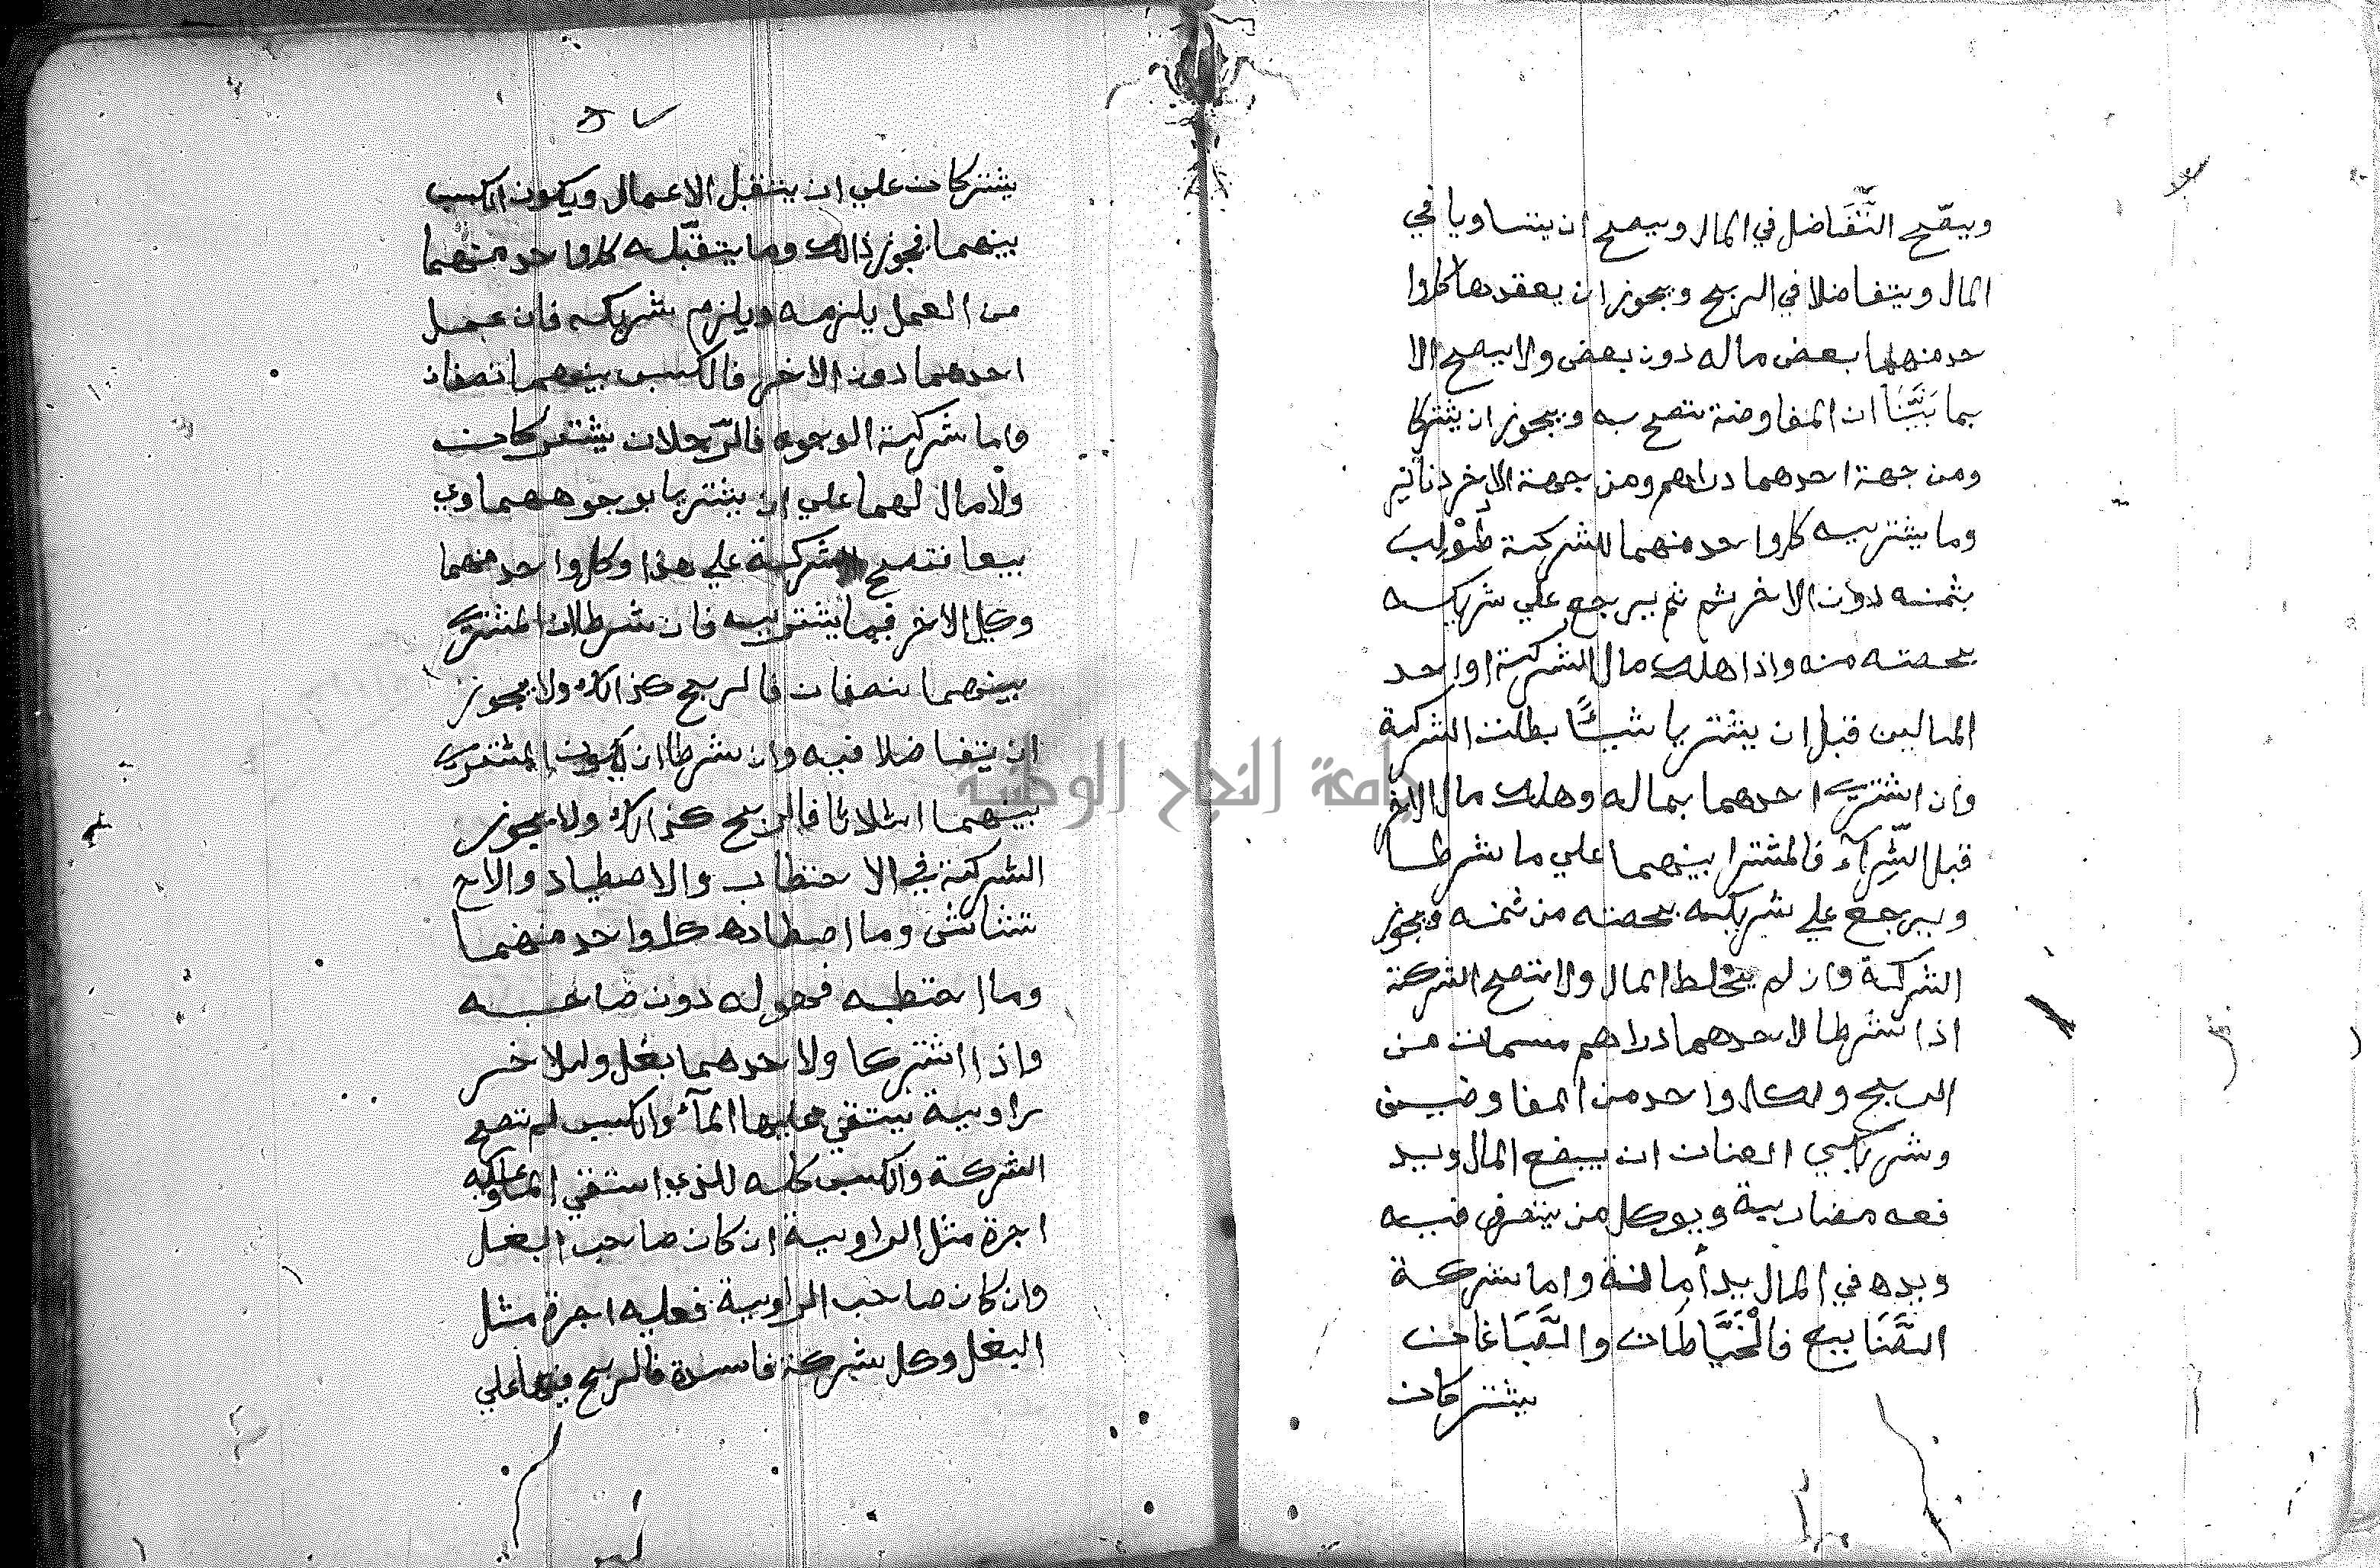 ويصّح التَّفَاضل في المال ويصح ان يتساويا في
المال ويتفاضلا في الربح ويجوز ان يعقدها كلوا
حد منهما ببعض ماله دون بعض ولا يصح الا
بما بَيَّنَّا ان المفاوضة تصح به ويجوز ان يشتركا
ومن جهة احدهما دراهم ومن جهة الاخر دنانير
وما يشتريه كلوا حد منهما للشركة طُوْلِب
بثمنه دون الاخر ثم يرجع علي شريكه
بحصته منه واذا هلك مال الشركة او احد
المالين قبل ان يشتريا شيئًا بطلت الشركة
وان اشتري احدهما بماله وهلك مال الاخر
قبل الشِّرآء فالمشترا بينهما علي ما شرطا
ويرجع علي شريكه بحصته من ثمنه ويجوز
الشركة وان لم يخلطا المال ولا تصح الشركة
اذا شرطا لاحدهما دراهم مسمات من
الربح ولكل واحد من المفاوضين
وشريكي العنان ان يبضع المال ويد
فعه مضاربة ويوكل من يتصرف فيه
ويده في المال يد أمانة واما شركة
الصَّنَايع فالْخَيَّاطَان والصَّبَاغان
يشتركان
۵۷
يشتركان علي ان يتقبل الاعمال ويكون الكسب
بينهما فجوز ذالك وما يتقبّله كلوا حد منهما
من العمل يلزمه ويلزم شريكه فان عمل
احدهما دون الاخر فالكسب بينهما نصفان
واما شركة الوجوه فالرّجلان يشتركان
ولا مال لهما علي ان يشتريا بوجوههما وي
بيعا فتصح الشركة علي هذا وكلوا حد منهما
وكيل الاخر فيما يشتريه فان شرطا ان المشتري
بينهما نصفان فالربح كذالك ولا يجوز
ان يتفاضلا فيه وان شرطا ان يكون المشتري
بينهما اثلاثا فالربح كذالك ولا يجوز
الشركة في الاحتطاب والاصطياد والاح
تشاش وما اصطاده كلوا حد منهما
وما احتطبه فهو له دون صاحبه
واذا اشتركا ولاحدهما بغل وللاخر
راوية يستقي عليها المآء والكسب لم تصح
الشركة والكسب كله للذي استقي الماو عليه
اجرة مثل الراوية ان كان صاحب البغل
وان كان صاحب الراوية فعليه اجرة مثل
البغل وكل شركة فاسدة فالربح فيها علي
جامعة النجاح الوطنية